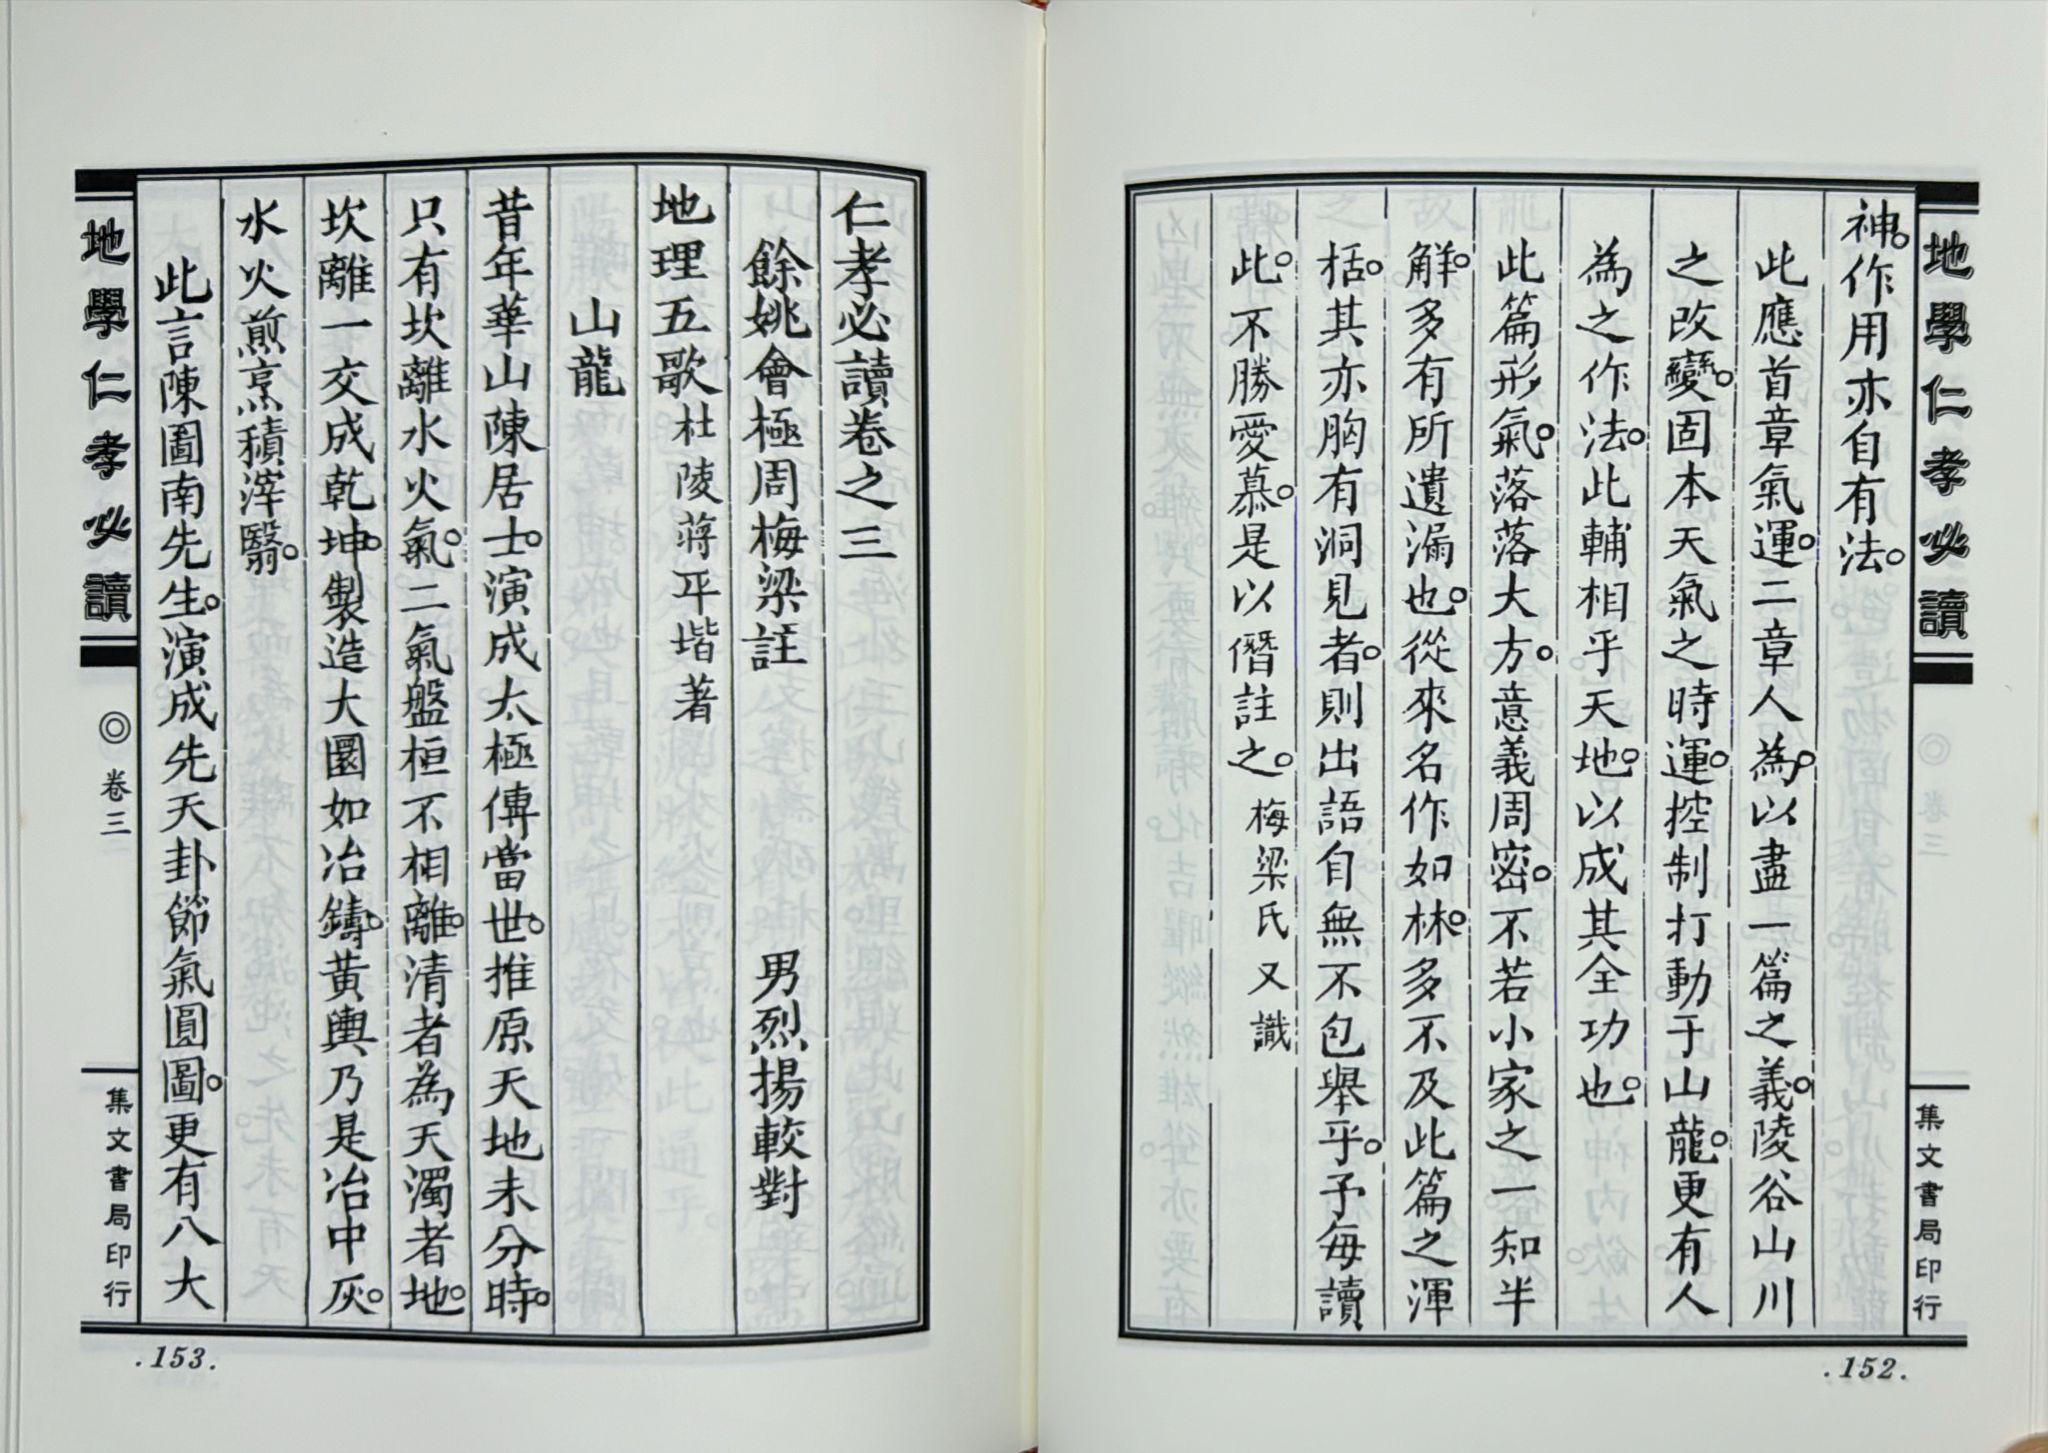 地學仁孝必讀
卷三
集文書局印行
神。作用亦自有法。
此應首章氣運。二章人為。以盡一篇之義。陵谷山川
之改變。固本天氣之時運。控制打動于山龍。更有人
為之作法。此輔相乎天地。以成其全功也。
此篇形氣。落落大方。意義周密。不若小家之一知半
解。多有所遺漏也。從來名作如林。多不及此篇之渾
括。其亦胸有洞見者。則出語自無不包舉乎。予每讀
此。不勝愛慕。是以僭註之。梅梁氏又識
.152.
仁孝必讀卷之三
餘姚會極周梅梁註 男烈揚較對
地理五歌 杜陵蔣平堦著
山龍
昔年華山陳居士。演成太極傳當世。推原天地未分時。
只有坎離水火氣。二氣盤桓不相離。清者為天濁者地。
坎離一交成乾坤。製造大圜如冶鑄。黃輿乃是冶中灰。
水火煎烹積滓翳。
此言陳圖南先生。演成先天卦節氣圓圖。更有八大
地學仁孝必讀
◎卷三
集文書局印行
.153.